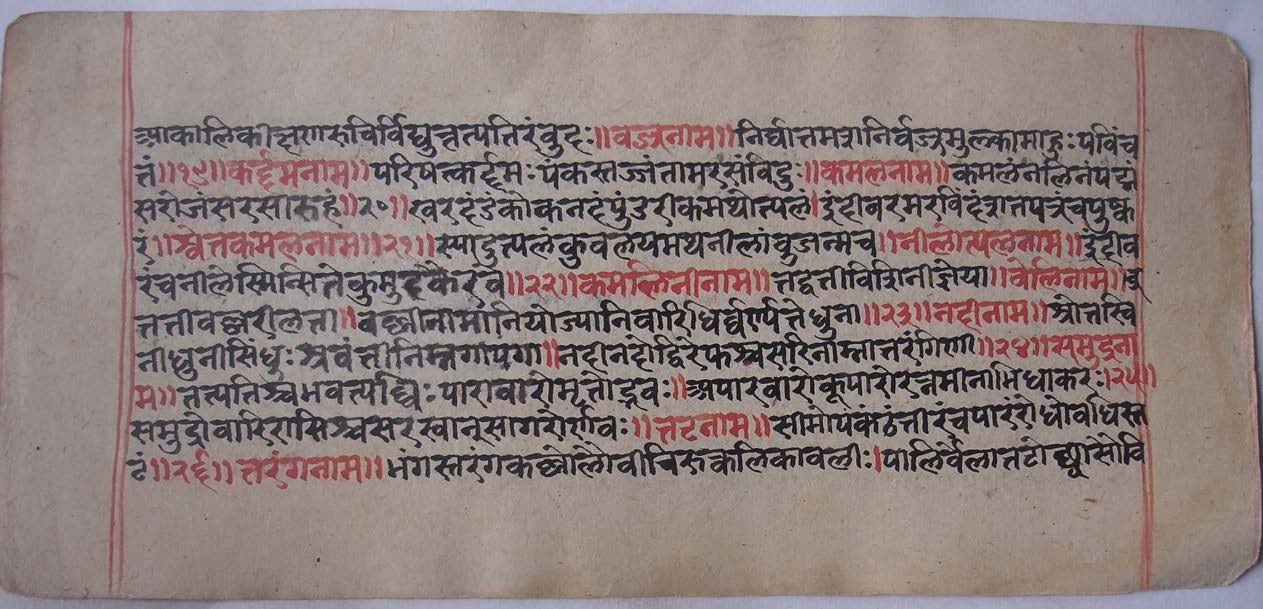 आकालिकीक्षणरुचिर्विद्युत्तत्पतिरंबुदः॥वज्रनाम॥निर्घातमशनिर्वज्रमुल्कामाहुःपविंच
तं॥१९॥कर्द्दमनाम॥परिषत्कर्दमःपंकस्तज्जंतामरसंविदुः॥कमलनाम॥कमलंनलिनंपद्मं
सरोजंसरसीरुहं॥२०॥खरदंडंकोकनदंपुंडरीकमथोत्पलं।इंदीवरमरविंदंशतपत्रंचपुष्क
रं॥श्वेतकमलनाम॥२१॥स्यादुत्पलंकुवलयमथनीलांबुजन्मच॥नीलोत्पलनाम॥इंदीव
रंचनीलेस्मिन्सितेकुमुदकैरवे॥२२॥कमलिनीनाम॥तद्वतीविशिनीज्ञेया॥वेलिनाम॥व्र
ततीवल्लरीलता॥वल्लीनामानियोज्यानिवारिधिर्वर्ण्यतेधुना॥२३॥नदीनाम॥श्रोतस्वि
नीधुनीसिंधुःश्रवंतीनिम्नगापगा॥नदीनदोद्विरेफश्चसरिन्नाम्नातरंगिणी॥२४॥समुद्रना
म॥तत्पतिश्चभवत्यब्धिःपारावारोमृतोद्भवः॥अपारवारोकूपारोरत्नमीनाभिधाकरः।२५॥
समुद्रोवारिराशिश्चसरस्वान्सागरोर्णवः॥तटनाम॥सीमोपकंठंतीरंचपारंरोधोवधिस्त
टं॥२६॥तरंगनाम॥भंगस्तरंगकल्लोलौवीचिरुत्कलिकावली।पालिर्वेलातटोच्छ्वासोवि